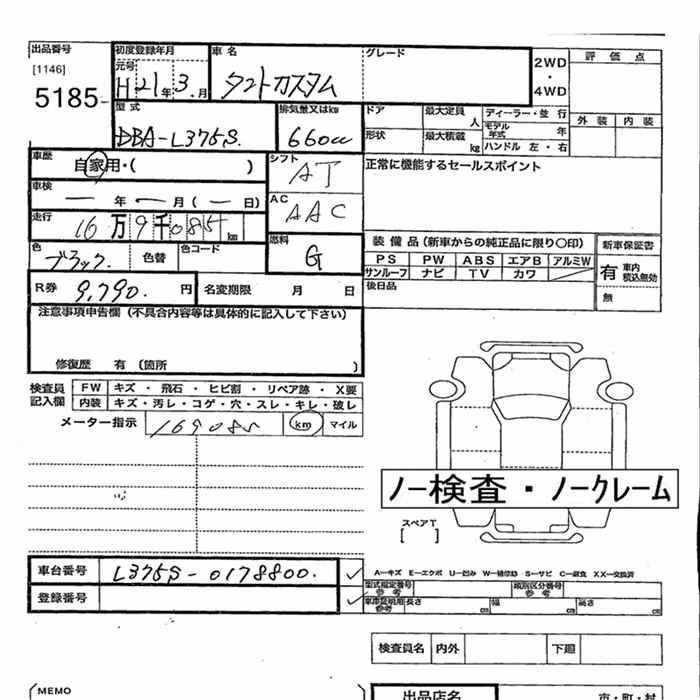 出品番号 初度登録年月 車名 グレード 2WD・4WD 評価点
[1146] 元号
5185- H21年3.月 タントカスタム
型式 排気量又はkw ドア 最大定員 人 ディーラー・並行 外装 内装
DBA-L375S. 660cc 形状 最大積載 kg モデル年式 年
ハンドル 左・右
車歴 自家用・( ) シフト AT 正常に機能するセールスポイント
車検 ー年ー月(ー日) AC AAC
走行 16万9千085km
色 ブラック. 色替 色コード 燃料 G 装備品(新車からの純正品に限り〇印) 新車保証書
PS PW ABS エアB アルミW 有 車内積込無効
サンルーフ ナビ TV カワ
R券 9,790. 円 名変期限 月 日 後日品 無
注意事項申告欄(不具合内容等は具体的に記入して下さい)
修復歴 有(箇所 )
検査員記入欄 FW キズ・飛石・ヒビ割・リペア跡・X要
内装 キズ・汚レ・コゲ・穴・スレ・キレ・破レ
メーター指示 169085 km マイル
ノー検査・ノークレーム
スペアT
[ ]
車台番号 L375S-0178800. A-キズ E-エクボ U-凹み W-補修跡 S-サビ C-腐食 XX-交換済
型式指定番号 参考 類別区分番号 参考
登録番号 車庫証明用 参考 長さ cm 幅 cm 高さ cm
検査員名 内外 下廻
(MEMO 出品店名 市・町・村